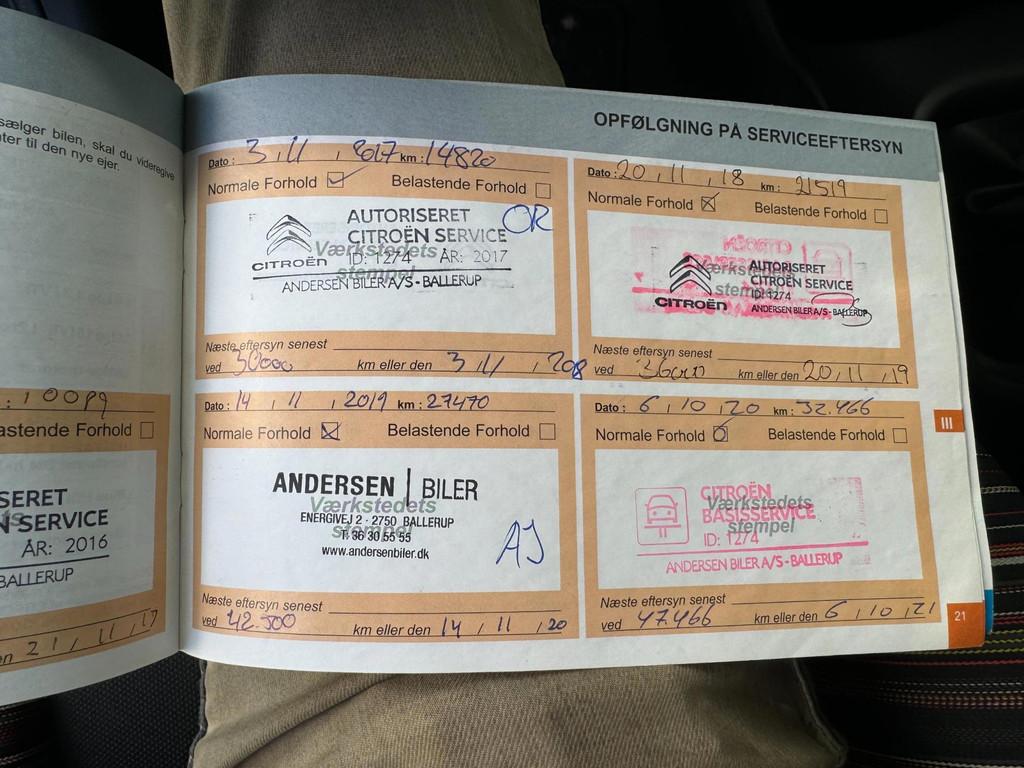 sælger bilen, skal du videregive
nter til den nye ejer.
: 10089
astende Forhold
SERET
N SERVICE
ÅR: 2016
BALLERUP
en 21 / 11 / 17
OPFØLGNING PÅ SERVICEEFTERSYN
Dato: 3, 11, 2017 km: 14820
Normale Forhold Belastende Forhold
AUTORISERET OR
CITROËN SERVICE
Værkstedets
CITROËN ID: 1274 ÅR: 2017
stempel
ANDERSEN BILER A/S - BALLERUP
Næste eftersyn senest
ved 30000 km eller den 3, 11, 2018
Dato: 20, 11, 18 km: 21519
Normale Forhold Belastende Forhold
Værkstedets AUTORISERET
stempel CITROËN SERVICE
ID: 1274
CITROËN ANDERSEN BILER A/S - BALLERUP
Næste eftersyn senest
ved km eller den 20, 11, 19
Dato: 14, 11, 2019 km: 27470
Normale Forhold Belastende Forhold
ANDERSEN | BILER
Værkstedets
ENERGIVEJ 2 - 2750 BALLERUP
stempel
T: 36 30 55 55
www.andersenbiler.dk
AJ
Næste eftersyn senest
ved 42.500 km eller den 14, 11, 20
Dato: 6, 10, 20 km: 32.466
Normale Forhold Belastende Forhold
CITROËN
Værkstedets
BASISSERVICE
stempel
ID: 1274
ANDERSEN BILER A/S - BALLERUP
Næste eftersyn senest
ved 47.466 km eller den 6, 10, 21
III
21